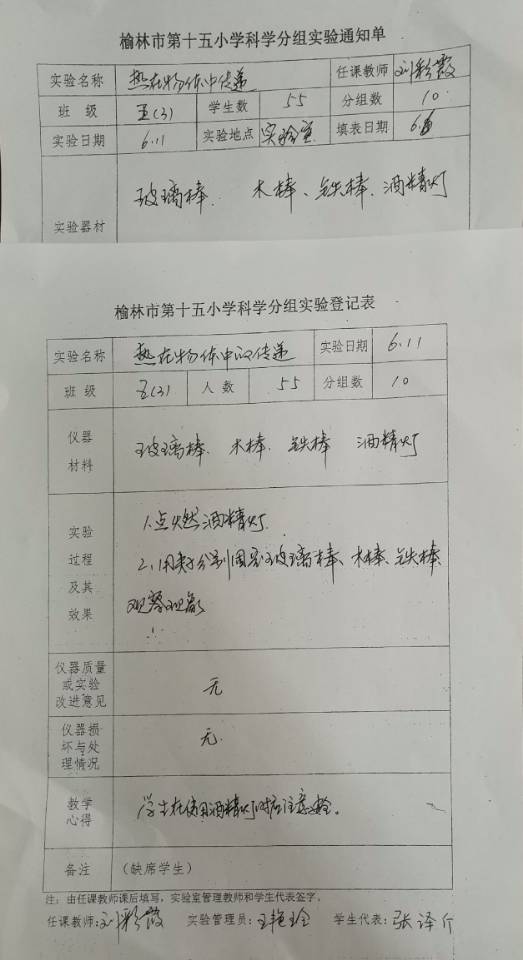 榆林市第十五小学科学分组实验通知单
实验名称 热在物体中传递 任课教师 刘彩霞
班 级 五(3) 学生数 55 分组数 10
实验日期 6.11 实验地点 实验室 填表日期
实验器材 玻璃棒、 木棒、铁棒、酒精灯
榆林市第十五小学科学分组实验登记表
实验名称 热在物体中的传递 实验日期 6.11
班 级 五(3) 人 数 55 分组数 10
仪器 材料 玻璃棒、木棒、铁棒 酒精灯
实验 过程 及其 效果
1.点燃酒精灯.
2.用夹子分别固定玻璃棒、木棒、铁棒
观察现象
仪器质量 或实验 改进意见 无
仪器损 坏与处 理情况 无.
教学 心得 学生在使用酒精灯时应注意安全.
备注 (缺席学生)
注:由任课教师课后填写,实验室管理教师和学生代表签字。
任课教师:刘彩霞 实验管理员:王艳玲 学生代表:张译